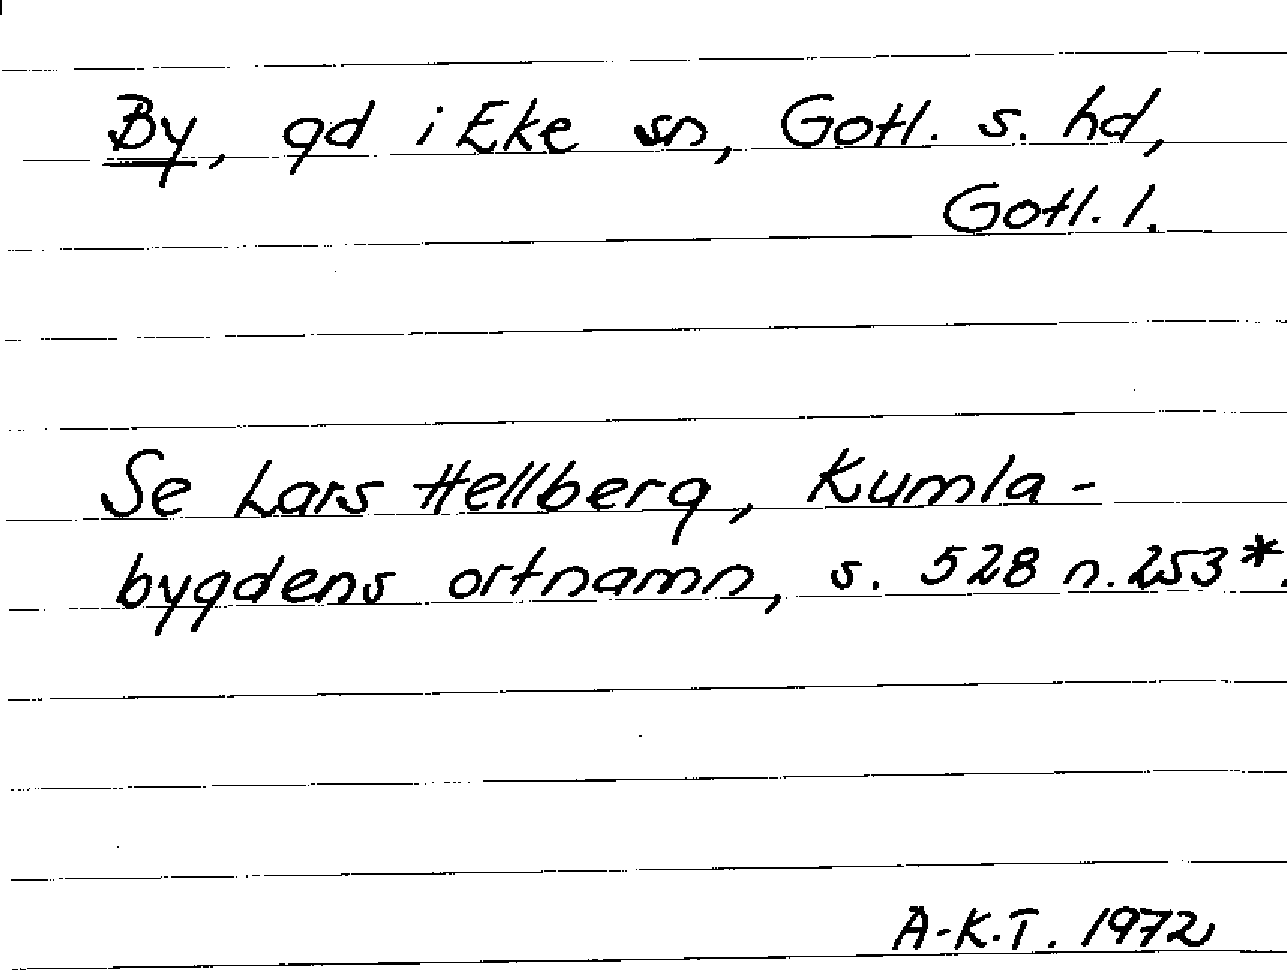 By, gd i Eke sn, Gotl. s. hd,
Gotl. l.
Se Lars Hellberg, Kumla-
bygdens ortnamn, s. 528 n. 253*.
A-K.T. 1972